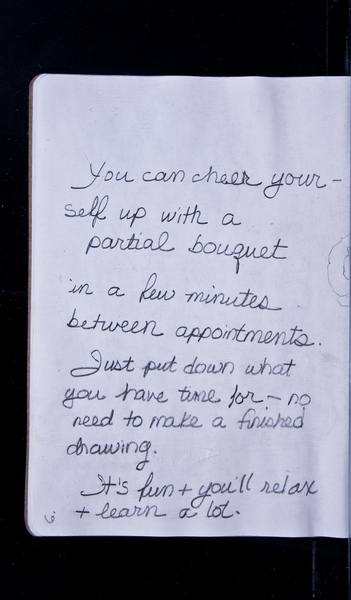 You can cheer your-
self up with a
partial bouquet
in a few minutes
between appointments.
Just put down what
you have time for - no
need to make a finished
drawing.
It's fun + you'll relax
+ learn a lot.